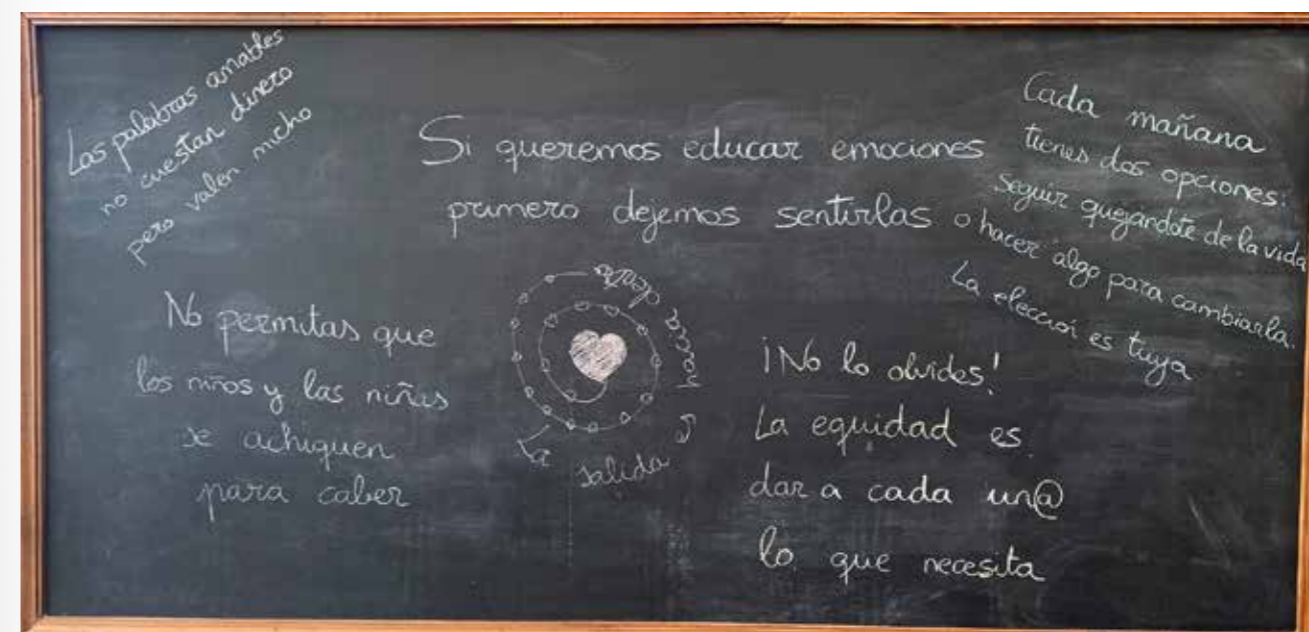 Las palabras amables
no cuestan dinero
pero valen mucho
Si queremos educar emociones
primero dejemos sentirlas
Cada mañana
tienes dos opciones:
seguir quejandote de la vida
o hacer algo para cambiarla.
La elección es tuya
No permitas que
los niños y las niñas
se achiquen
para caber
La salida es hacia dentro
¡No lo olvides!
La equidad es
dar a cada un@
lo que necesita